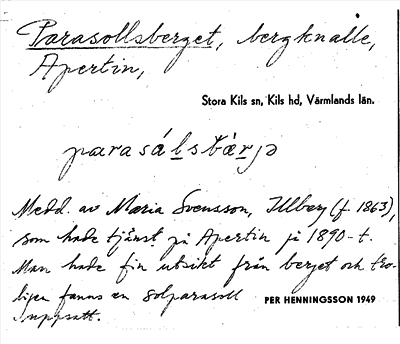 Parasollsberget, bergknalle,
Apertin,
Stora Kils sn, Kils hd, Värmlands län.
parasálsbär̀jə
Medd. av Maria Svensson, Illberg (f. 1863),
som hade tjänst på Apertin på 1890-t.
Man hade fin utsikt från berget och tro-
ligen fanns en solparasoll
uppsatt.
PER HENNINGSSON 1949